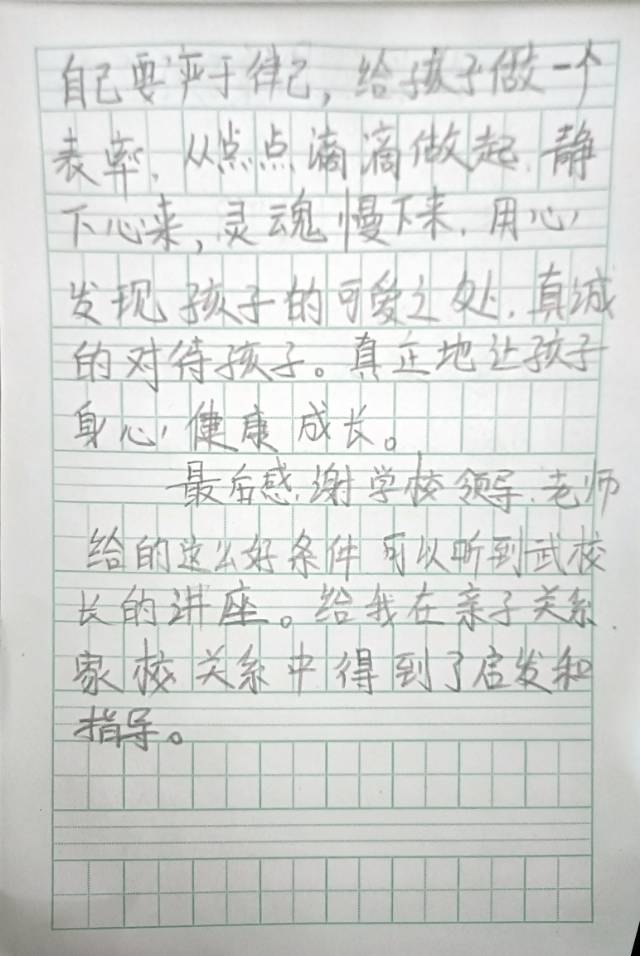 自己要严于律己，给孩子做一个
表率，从点点滴滴做起，静
下心来，灵魂慢下来，用心
发现孩子的可爱之处，真诚
的对待孩子。真正地让孩子
身心健康成长。
最后感谢学校领导、老师
给的这么好条件可以听到武校
长的讲座。给我在亲子关系、
家校关系中得到了启发和
指导。